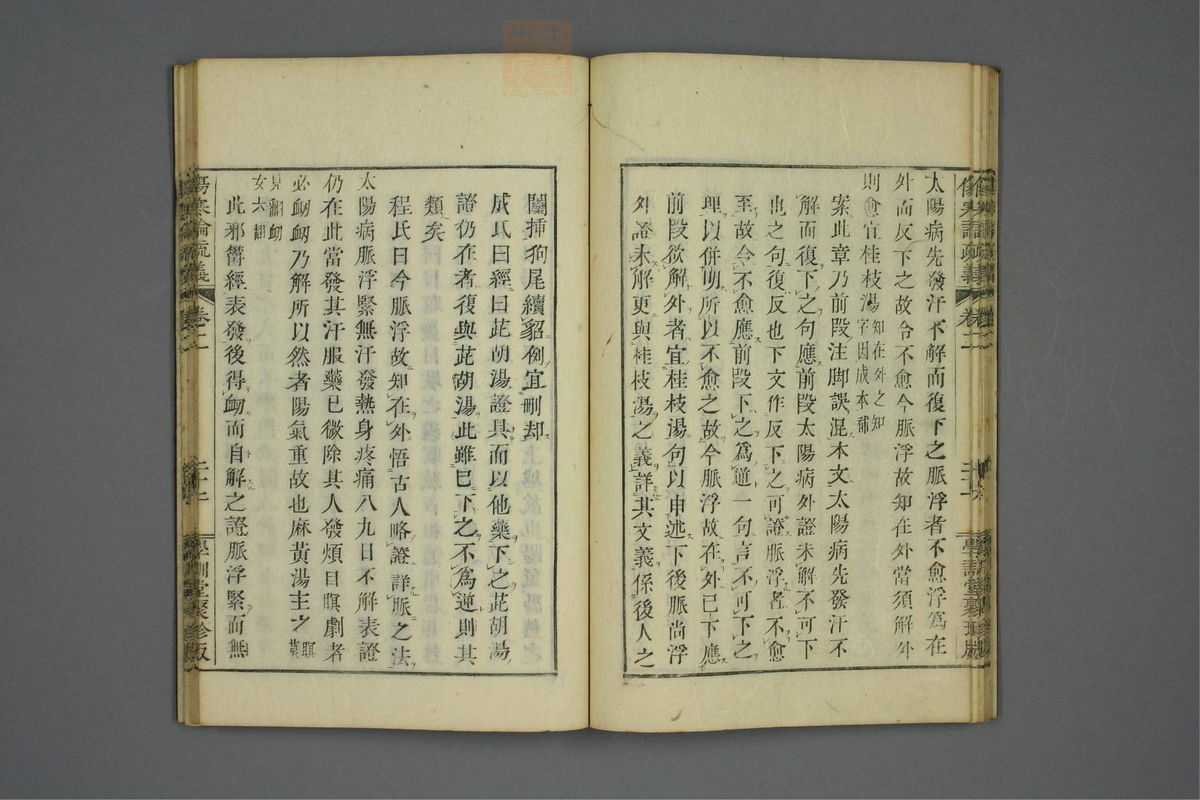 太陽病先發汗不解而復下之脈浮者不愈浮爲在
外而反下之故令不愈今脈浮故知在外當須解外
則愈宜桂枝湯知在外之知
字因成本補
案此章乃前段注脚誤混本文太陽病先發汗不
解而復下之句應前段太陽病外證未解不可下
也之句復反也下文作反下之可證脈浮者不愈
至故令不愈應前段下之爲逆一句言不可下之
理以併明所以不愈之故今脈浮故在外已下應
前段欲解外者宜桂枝湯句以申述下後脈尚浮
外證未解更與桂枝湯之義詳其文義係後人之
闌挿狗尾續貂例宜刪却
成氏曰經曰茈胡湯證具而以他藥下之茈胡湯
證仍在者復與茈胡湯此雖已下之不爲逆則其
類矣
程氏曰今脈浮故知在外悟古人略證詳脈之法
太陽病脈浮緊無汗發熱身疼痛八九日不解表證
仍在此當發其汗服藥已微除其人發煩目瞑劇者
必衂衂乃解所以然者陽氣重故也麻黃湯主之瞑
莫
見翻衂
女六翻
此邪鬱經表發後得衂而自解之證脈浮緊而無
傷寒論疏義
卷二
學訓堂聚珍版